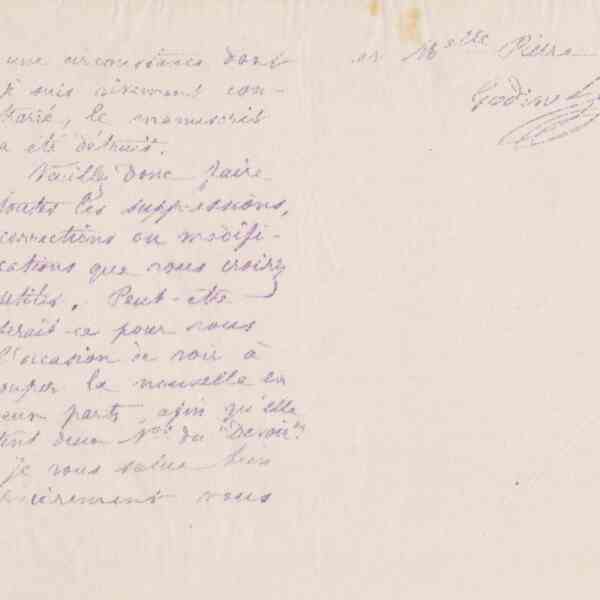 une circonstance dont
je suis vivement con-
trarié, le manuscrit
a été détruit.
Veuillez donc faire
toutes les suppressions,
corrections ou modifi-
cations que vous croirez
utiles. Peut-être
serait-ce pour vous
l'occasion de voir à
couper la nouvelle en
deux parts, afin qu'elle
tint deux Nos du "Devoir".
je vous salue bien
sincèrement vous
et Mselle Pierre
Godin